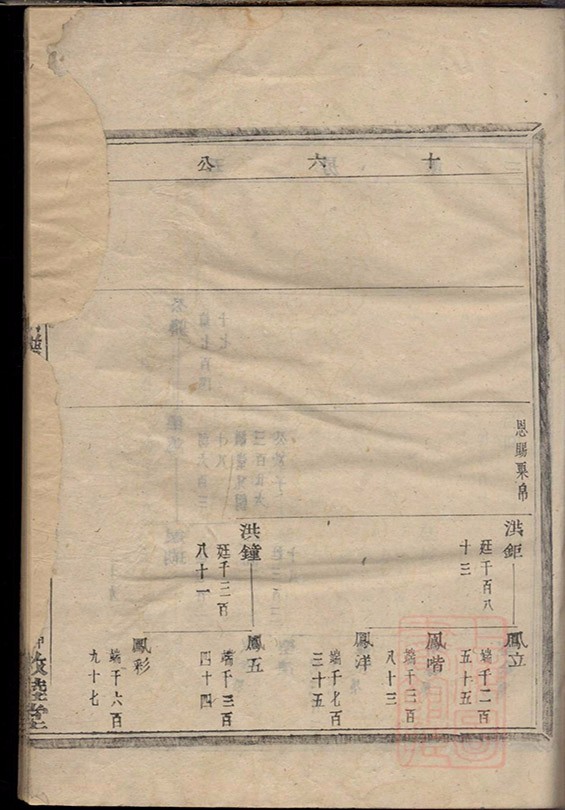 十六公
恩賜粟帛
洪鉅
廷千百八
十三
鳳立
端千二百
五十五
鳳喈
端千三百
八十三
鳳洋
端千七百
三十五
洪鐘
廷千三百
八十一
鳳五
端千三百
四十四
鳳彩
端千六百
九十七
敦睦堂